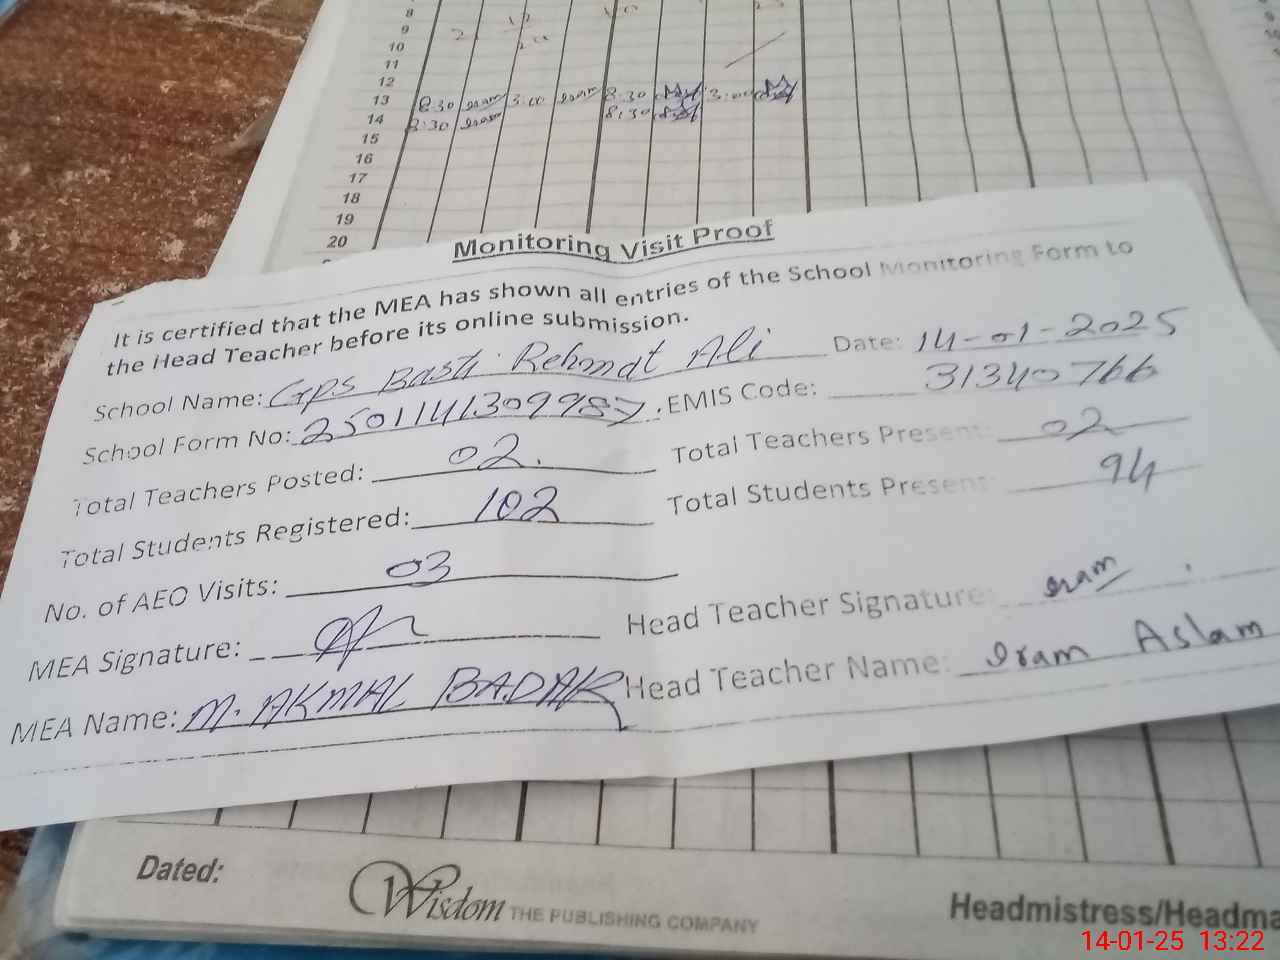 8
9
10
11
12
13 8:30 eram 3:00 eram 8:30 3:00
14 8:30 eram 8:30
15
16
17
18
19
20
Monitoring Visit Proof
It is certified that the MEA has shown all entries of the School Monitoring Form to
the Head Teacher before its online submission.
School Name: GPS Basti Rehmat Ali Date: 14-01-2025
School Form No: 2501141309987. EMIS Code: 31340766
Total Teachers Posted: 02. Total Teachers Present: 02
Total Students Registered: 102 Total Students Present: 94
No. of AEO Visits: 03
MEA Signature: Head Teacher Signature: eram
MEA Name: M. AKMAL BADAR Head Teacher Name: Iram Aslam
Dated:
Wisdom THE PUBLISHING COMPANY
Headmistress/Headma
14-01-25 13:22